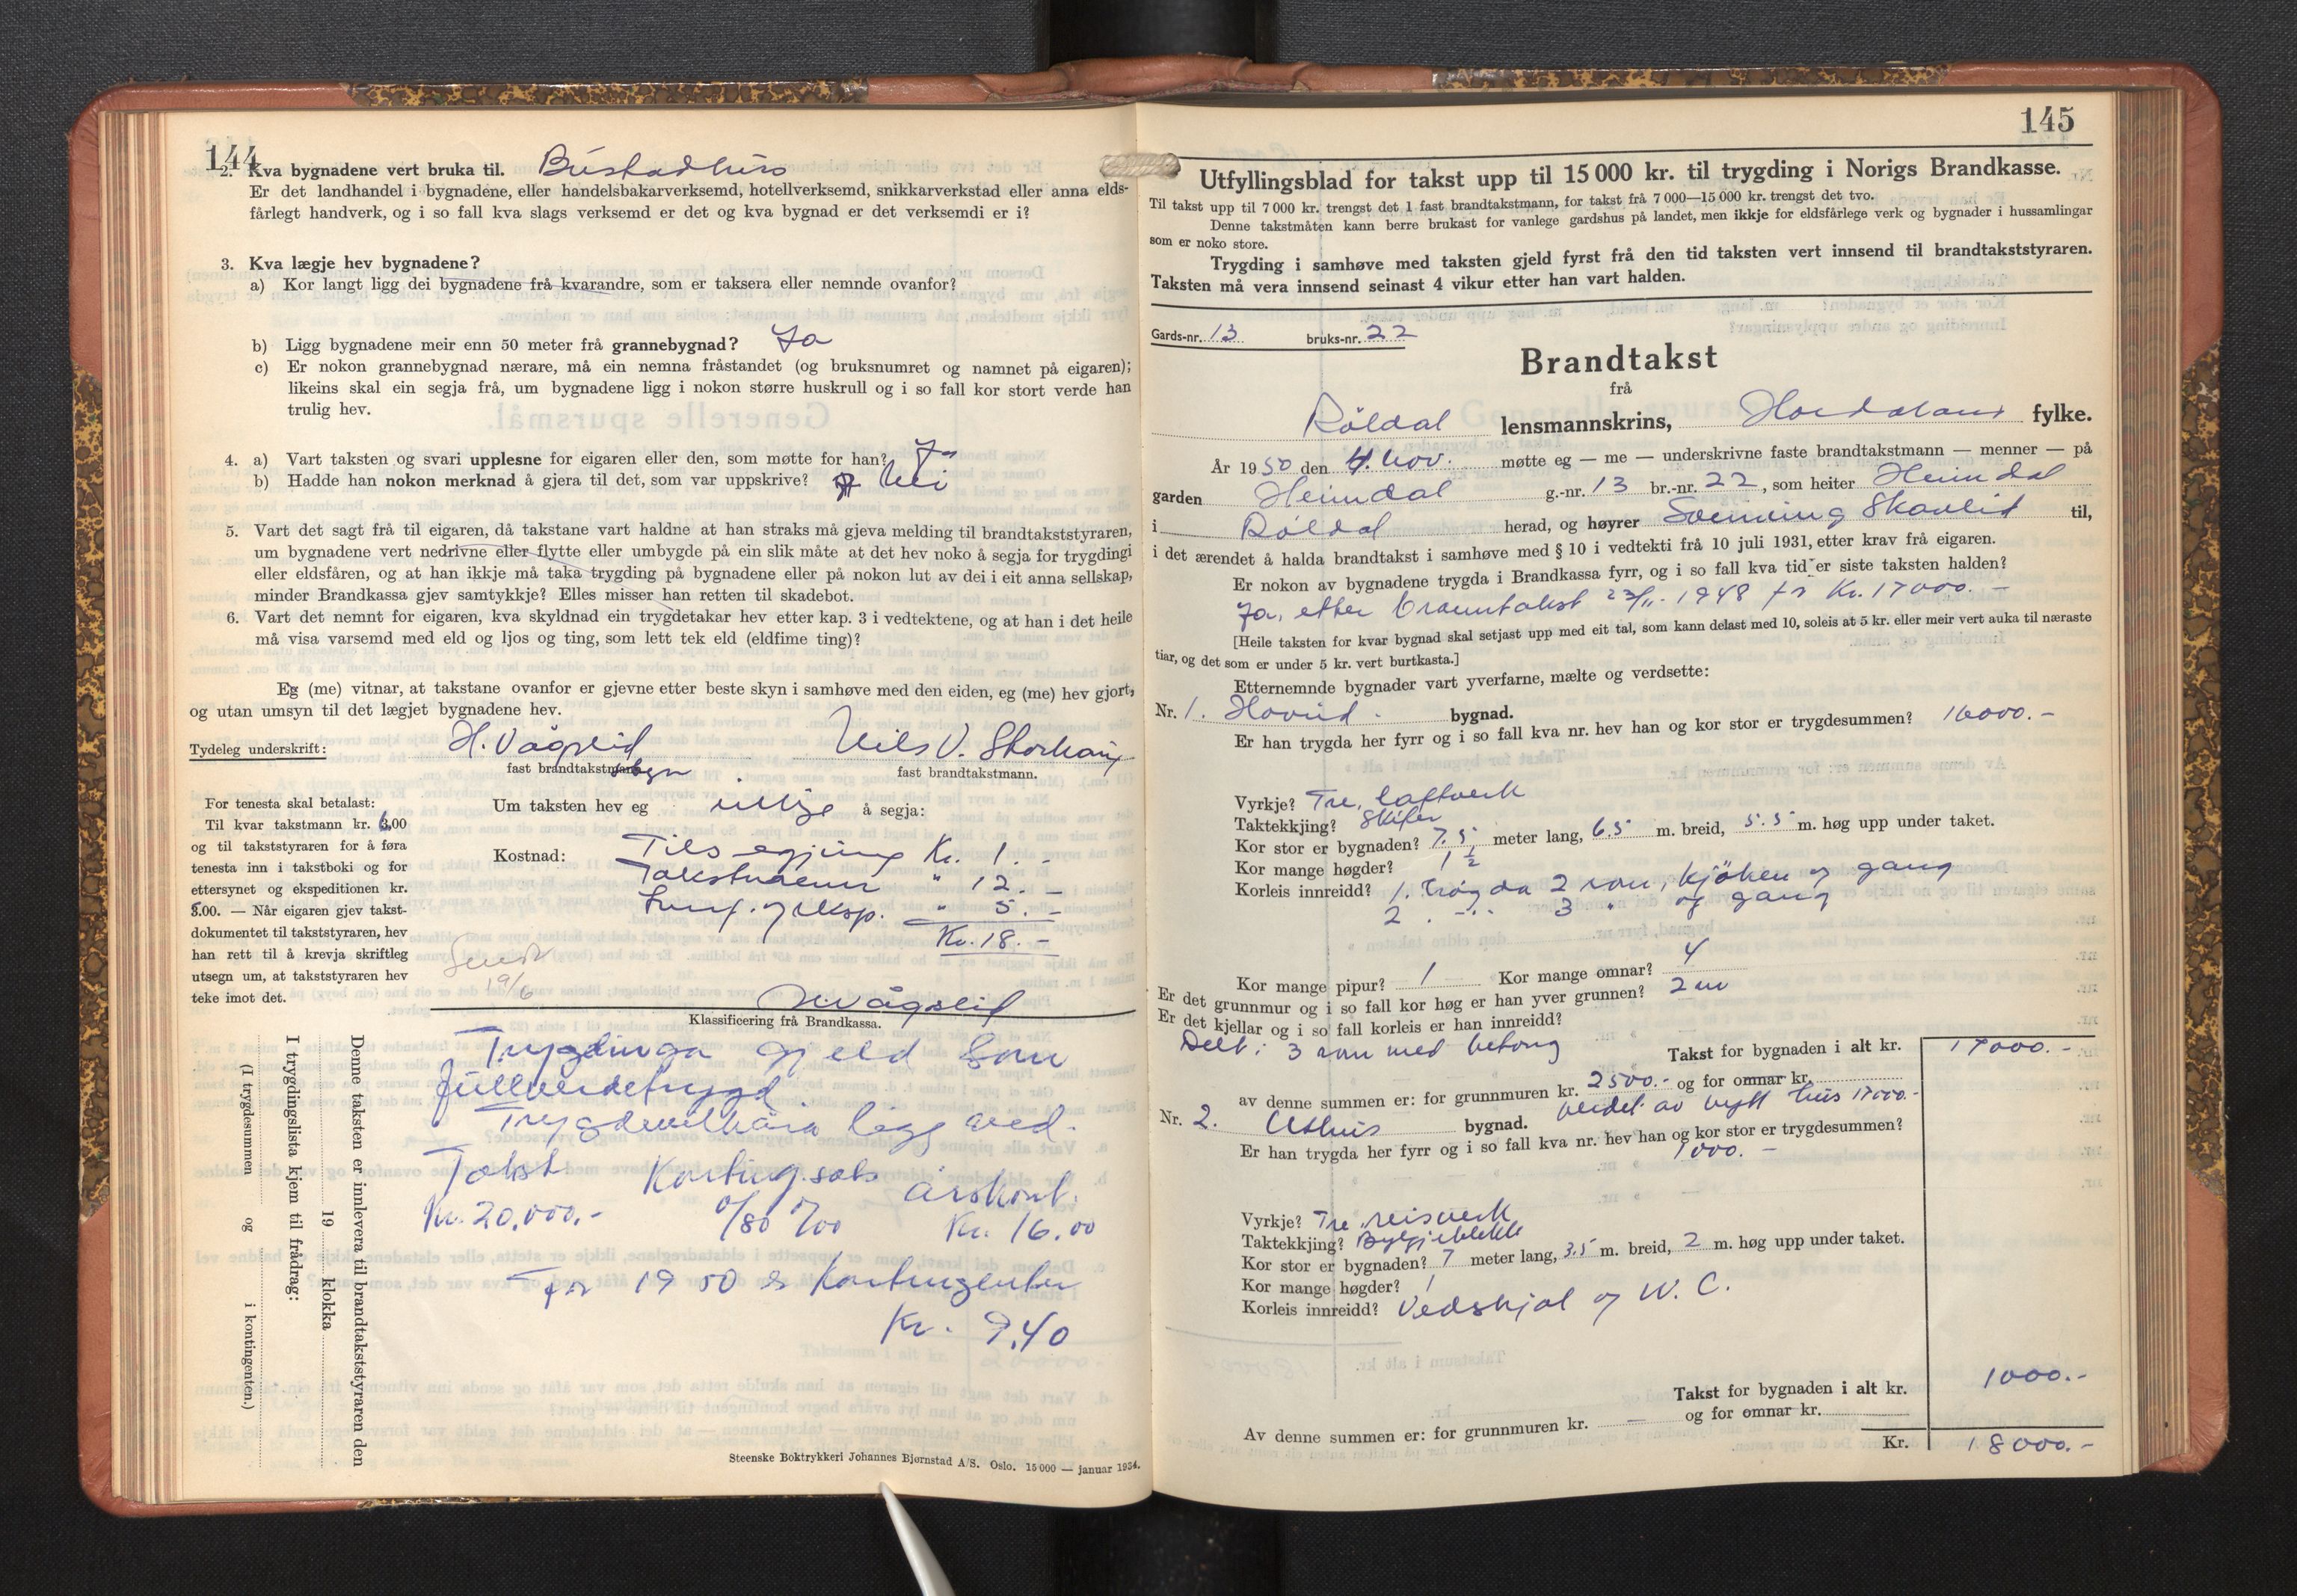 144
2. Kva bygnadene vert bruka til. Bustadhus
Er det landhandel i bygnadene, eller handelsbakarverksemd, hotellverksemd, snikkarverkstad eller anna elds-
fårlegt handverk, og i so fall kva slags verksemd er det og kva bygnad er det verksemdi er i?
3. Kva lægje hev bygnadene?
a) Kor langt ligg dei bygnadene frå kvarandre, som er taksera eller nemnde ovanfor?
b) Ligg bygnadene meir enn 50 meter frå grannebygnad? Ja
c) Er nokon grannebygnad nærare, må ein nemna fråstandet (og bruksnumret og namnet på eigaren);
likeins skal ein segja frå, um bygnadene ligg i nokon større huskrull og i so fall kor stort verde han
trulig hev.
4. a) Vart taksten og svari upplesne for eigaren eller den, som møtte for han? Ja
b) Hadde han nokon merknad å gjera til det, som var uppskrive? Nei
5. Vart det sagt frå til eigaren, då takstane vart haldne at han straks må gjeva melding til brandtakststyraren,
um bygnadene vert nedrivne eller flytte eller umbygde på ein slik måte at det hev noko å segja for trygdingi
eller eldsfåren, og at han ikkje må taka trygding på bygnadene eller på nokon lut av dei i eit anna sellskap,
minder Brandkassa gjev samtykkje? Elles misser han retten til skadebot.
6. Vart det nemnt for eigaren, kva skyldnad ein trygdetakar hev etter kap. 3 i vedtektene, og at han i det heile
må visa varsemd med eld og ljos og ting, som lett tek eld (eldfime ting)?
Eg (me) vitnar, at takstane ovanfor er gjevne etter beste skyn i samhøve med den eiden, eg (me) hev gjort,
og utan umsyn til det lægjet bygnadene hev.
Tydeleg underskrift: H. Vågslid Nils V. Storhaug
fast brandtakstmann. fast brandtakstmann.
For tenesta skal betalast:
Til kvar takstmann kr. 6,00
og til takststyraren for å føra
tenesta inn i takstboki og for
ettersynet og ekspeditionen kr.
5.00. — Når eigaren gjev takst-
dokumentet til takststyraren, hev
han rett til å krevja skriftleg
utsegn um, at takststyraren hev
teke imot det.
Um taksten hev eg intkje å segja:
Kostnad: Tilsegjing Kr. 1.-
Takstmenn " 12.-
Innf. og eksp. " 5.-
Kr. 18.-
Sendt
19/6
H. Vågslid
Klassificering frå Brandkassa.
Trygdinga gjeld som
fullverdetrygd.
Trygdevilkåra ligg ved.
Takst Konting.sats årskont.
Kr. 20.000.- 0/80 ‰ Kr. 16.00
For 1950 er kontingenten
Kr. 9.40
Denne taksten er innlevera til brandtakststyraren den
19 klokka
I trygdingslista kjem til frådrag:
(I trygdesummen og i kontingenten.)
Steenske Boktrykkeri Johannes Bjørnstad A/S. Oslo. 15 000 — januar 1934.
145
Utfyllingsblad for takst upp til 15 000 kr. til trygding i Norigs Brandkasse.
Til takst upp til 7 000 kr. trengst det 1 fast brandtakstmann, for takst frå 7 000—15 000 kr. trengst det tvo.
Denne takstmåten kann berre brukast for vanlege gardshus på landet, men ikkje for eldsfårlege verk og bygnader i hussamlingar
som er noko store.
Trygding i samhøve med taksten gjeld fyrst frå den tid taksten vert innsend til brandtakststyraren.
Taksten må vera innsend seinast 4 vikur etter han vart halden.
Gards-nr. 13 bruks-nr. 22
Brandtakst
frå
Röldal lensmannskrins, Hordaland fylke.
År 1950 den 4. nov. møtte eg — me — underskrivne faste brandtakstmann — menner — på
garden Heimdal g.-nr. 13 br.-nr. 22, som heiter Heimdal
i Röldal herad, og høyrer Svenning Skavlid til,
i det ærendet å halda brandtakst i samhøve med § 10 i vedtekti frå 10 juli 1931, etter krav frå eigaren.
Er nokon av bygnadene trygda i Brandkassa fyrr, og i so fall kva tid er siste taksten halden?
Ja, etter branntakst 23/11. 1948 for Kr. 17000.-
[Heile taksten for kvar bygnad skal setjast upp med eit tal, som kann delast med 10, soleis at 5 kr. eller meir vert auka til næraste
tiar, og det som er under 5 kr. vert burtkasta.]
Etternemnde bygnader vart yverfarne, mælte og verdsette:
Nr. 1. Hovud bygnad.
Er han trygda her fyrr og i so fall kva nr. hev han og kor stor er trygdesummen? 16000.-
Vyrkje? Tre, laftverk
Taktekkjing? Skifer
Kor stor er bygnaden? 7.5 meter lang, 6.5 m. breid, 5.5 m. høg upp under taket.
Kor mange høgder? 1 ½
Korleis innreidd? 1. høgda 2 rom, kjöken og gang
2. -"- 3 " og gang
Kor mange pipur? 1 Kor mange omnar? 4
Er det grunnmur og i so fall kor høg er han yver grunnen? 2 m
Er det kjellar og i so fall korleis er han innreidd?
Delt i 3 rom med betong
Takst for bygnaden i alt kr. 17000.-
av denne summen er: for grunnmuren kr. 2500.- og for omnar kr.
verdet av nytt hus 17000.-
Nr. 2. Uthus bygnad.
Er han trygda her fyrr og i so fall kva nr. hev han og kor stor er trygdesummen?
1000.-
Vyrkje? Tre, reisverk
Taktekkjing? Bylgjeblekk
Kor stor er bygnaden? 7 meter lang, 3.5 m. breid, 2 m. høg upp under taket.
Kor mange høgder? 1
Korleis innreidd? Vedskjol og W. C.
Takst for bygnaden i alt kr. 1000.-
Av denne summen er: for grunnmuren kr. — og for omnar kr.
Kr. 18000.-